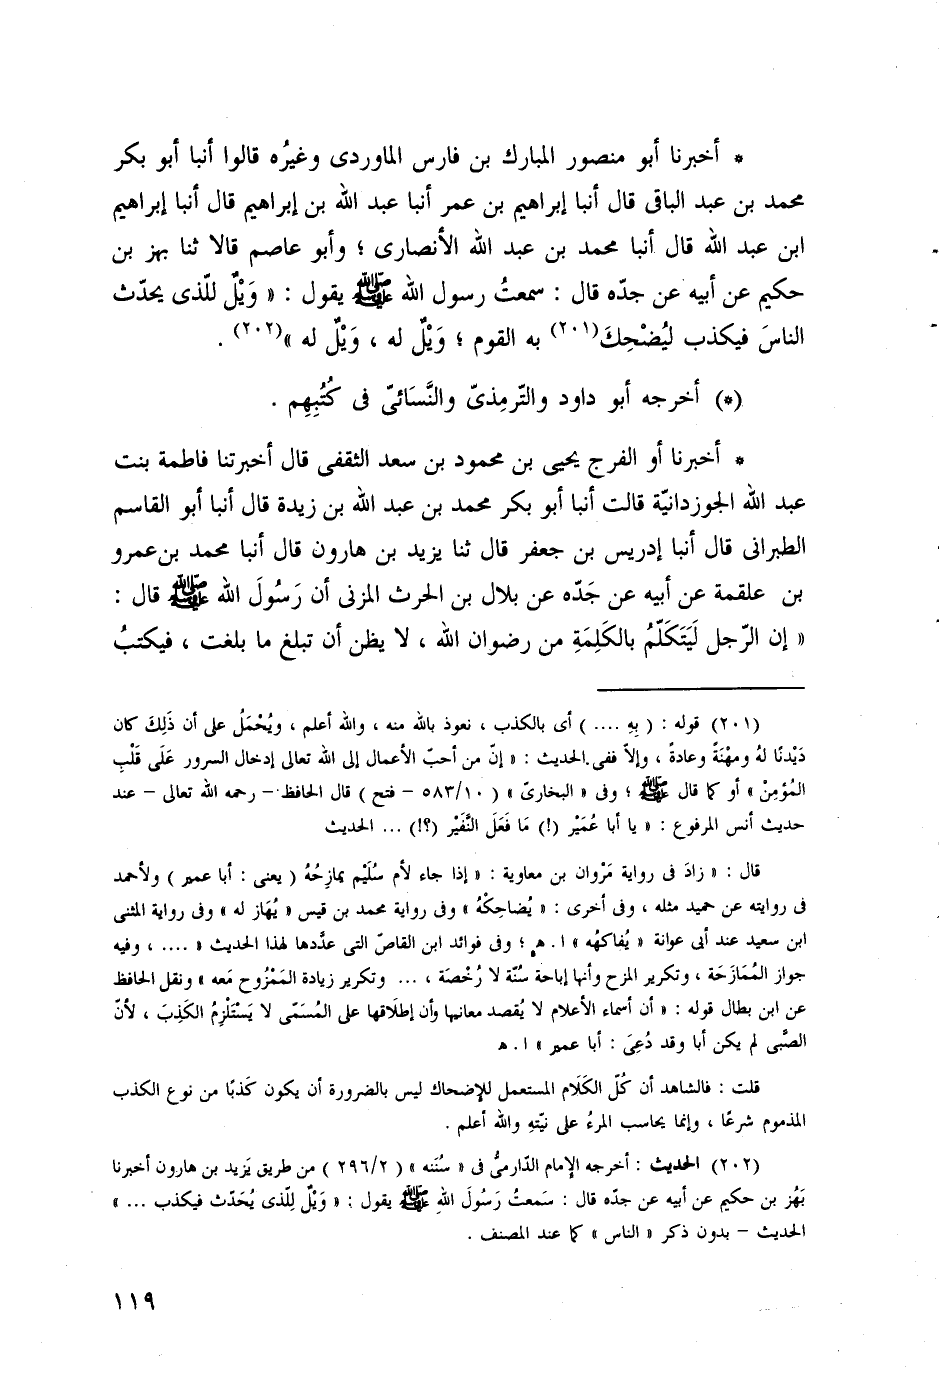 * أخبرنا أبو منصور المبارك بن فارس الماوردى وغيرُه قالوا أنبا أبو بكر
محمد بن عبد الباقى قال أنبا إبراهيم بن عمر أنبا عبد الله بن إبراهيم قال أنبا إبراهيم
ابن عبد الله قال أنبا محمد بن عبد الله الأنصارى ؛ وأبو عاصم قالا ثنا بهز بن
حكيم عن أبيه عن جدّه قال : سمعتُ رسول الله ﷺ يقول : « وَيْلٌ للّذى يحدّث
الناسَ فيكذب ليُضْحِكَ(٢٠١) به القوم ؛ وَيْلٌ له ، وَيْلٌ له »(٢٠٢) .
(*) أخرجه أبو داود والتّرمِذىّ والنَّسَائىّ فى كُتُبِهِم .
* أخبرنا أو الفرج يحيى بن محمود بن سعد الثقفى قال أخبرتنا فاطمة بنت
عبد الله الجوزدانيّة قالت أنبا أبو بكر محمد بن عبد الله بن زيدة قال أنبا أبو القاسم
الطبرانى قال أنبا إدريس بن جعفر قال ثنا يزيد بن هارون قال أنبا محمد بن عمرو
بن علقمة عن أبيه عن جَدّه عن بلال بن الحرث المزنى أن رَسُولَ الله ﷺ قال :
« إن الرّجل لَيَتَكَلّمُ بالكَلِمَةِ من رضوان الله ، لا يظن أن تبلغ ما بلغت ، فيكتبُ
(٢٠١) قوله : ( بِهِ .... ) أى بالكذب ، نعوذ بالله منه ، والله أعلم ، ويُحْمَلُ على أن ذَلِكَ كان
دَيْدنًا لهُ ومهْنَةً وعادةً ، وإلاّ ففى الحديث : « إنّ من أحبّ الأعمال إلى الله تعالى إدخال السرور عَلَى قَلْبِ
المُؤمِنْ » أو كما قال ﷺ ؛ وفى « البخارىّ » ( ٥٨٣/١٠ – فتح ) قال الحافظ – رحمه الله تعالى – عند
حديث أنس المرفوع : « يا أبا عُمَيْر (!) مَا فَعَلَ النُّغَيْر (؟!) ... الحديث
قال : « زادَ فى رواية مَرْوان بن معاوية : « إذا جاء لأم سُلَيْم يمازِحُهُ ( يعنى : أبا عمير ) ولأحمد
فى روايته عن حميد مثله ، وفى أخرى : « يُضاحِكْهُ » وفى رواية محمد بن قيس « يُهَاز له » وفى رواية المثنى
ابن سعيد عند أبى عوانة « يُفاكهُه » ا . هـ ؛ وفى فوائد ابن القاصّ التى عدَّدها لهذا الحديث « .... ، وفيه
جواز المُمَازَحَة ، وتكرير المزح وأنها إباحة سُنّة لا رُخْصَة ، ... وتكرير زيادة المَمْزُوح مَعه » ونقل الحافظ
عن ابن بطال قوله : « أن أسماء الأعلام لا يُقصد معانيها وأن إطلَاقها على المُسَمّى لا يَسْتَلْزِمُ الكَذِبَ ، لأنّ
الصَّبى لم يكن أبا وقد دُعِىَ : أبا عمير » ا . هـ
قلت : فالشاهد أن كُلّ الكَلَام المستعمل للإضحاك ليس بالضرورة أن يكون كَذبًا من نوع الكذب
المذموم شرعًا ، وإنما يحاسب المرءُ على نيّتهِ والله أعلم .
(٢٠٢) الحديث : أخرجه الإمام الدّارمىُّ فى « سُنَنه » ( ٢٩٦/٢ ) من طريق يَزيد بن هارون أخبرنا
بَهْز بن حكيم عن أبيه عن جدّه قال : سَمعتُ رَسُولَ اللهِ ﷺ يقول : « وَيْلٌ لِلّذى يُحَدّث فيكذب ... »
الحديث – بدون ذكر « الناس » كما عند المصنف .
١١٩